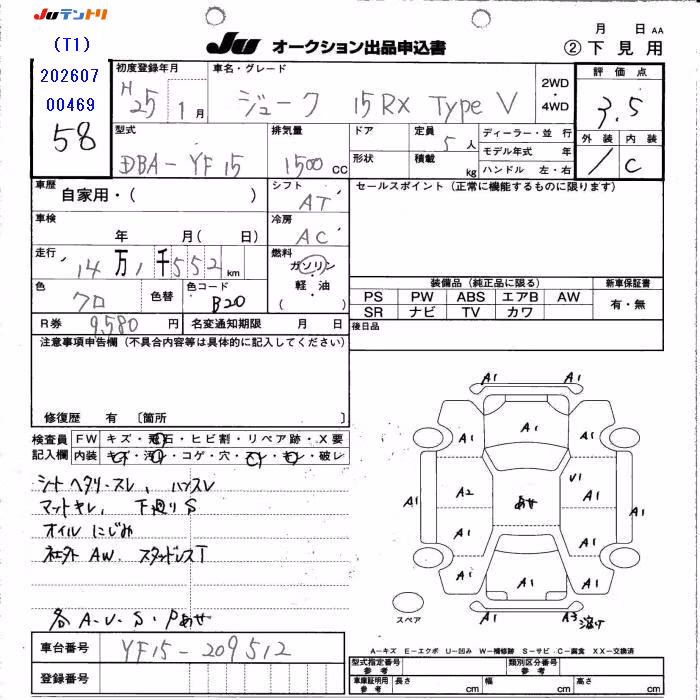 JUテントリ
(T1)
202607
00469
58
JU オークション出品申込書
月 日 AA
② 下見用
初度登録年月
H25 1月
車名・グレード
ジューク 15RX Type V
2WD・4WD
評価点
3.5
外装 内装
/ C
型式
DBA-YF15
排気量
1500 cc
ドア
形状
定員 5人
積載 kg
ディーラー・並行
モデル年式 年
ハンドル 左・右
車歴
自家用・( )
シフト
AT
セールスポイント (正常に機能するものに限ります)
車検
年 月( 日)
冷房
AC
走行
14万1千552km
燃料
ガソリン・軽油・( )
色
クロ
色替
色コード
B20
装備品 (純正品に限る)
新車保証書
PS PW ABS エアB AW
SR ナビ TV カワ
有・無
R券 9,580円
名変通知期限 月 日
後日品
注意事項申告欄 (不具合内容等は具体的に記入してください)
修復歴 有 〔箇所 〕
検査員記入欄
FW キズ・飛石・ヒビ割・リペア跡・X要
内装 キズ・汚れ・コゲ・穴・スレ・キレ・破レ
シートヘタリ・スレ、ハンスレ
マットキレ、下廻りS
オイルにじみ
社外AW. スタッドレスT
各A・U・S・Pあせ
A1 A1
A1 A1 A1
A1 A2 あせ U1 A1 A1
A1 A1
A1 A1 A1
A1 A3 溶け
スペア
A-キズ E-エクボ U-凹み W-補修跡 S-サビ C-腐食 XX-交換済
車台番号 YF15-209512
登録番号
型式指定番号 参考
類別区分番号 参考
車庫証明用 参考 長さ cm 幅 cm 高さ cm